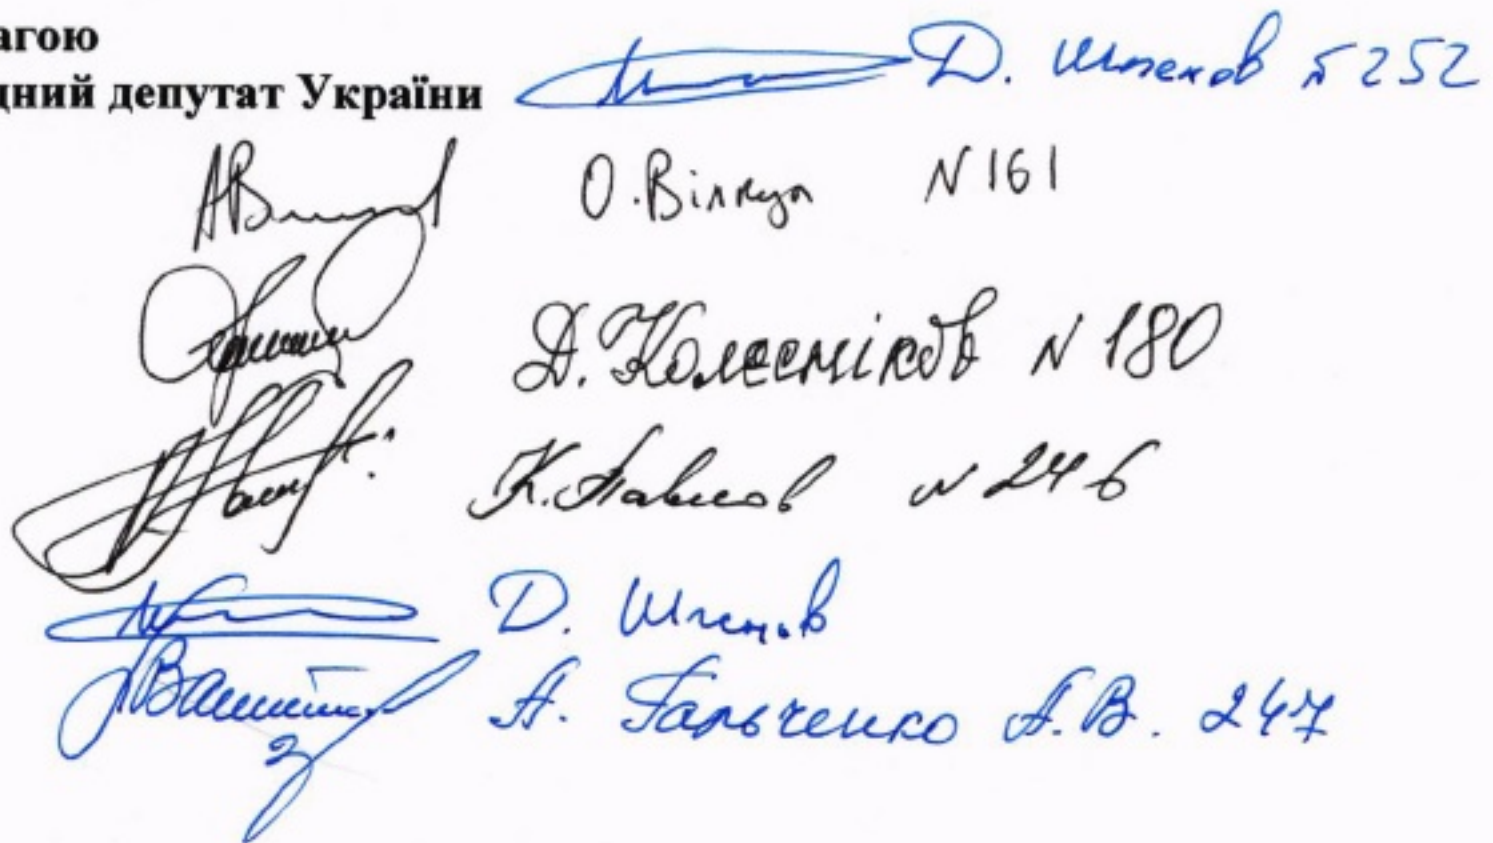 агою
дний депутат України Д. Шпенов №252
О. Вілкул N 161
Д. Колєсніков N 180
К. Павлов N 246
Д. Шпенов
А. Гальченко А.В. 247